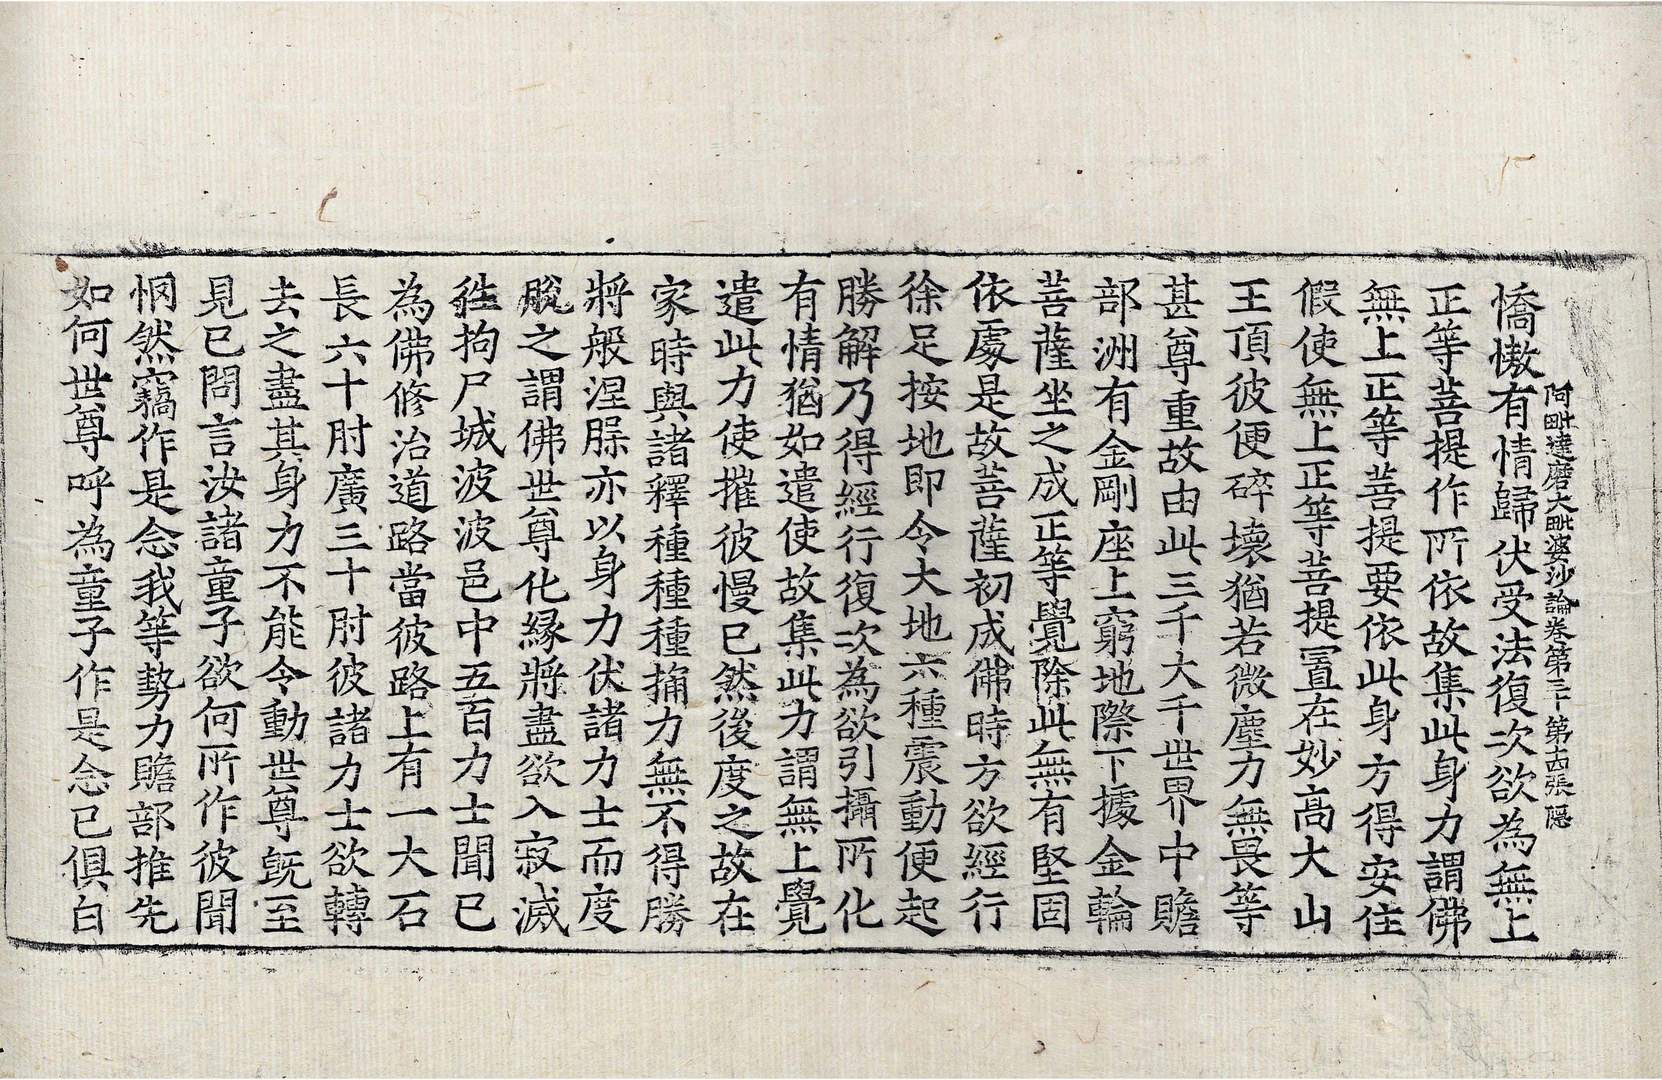 阿毗達磨大毗婆沙論卷第三十 第十四張 隱
憍慠有情歸伏受法復次欲為無上
正等菩提作所依故集此身力謂佛
無上正等菩提要依此身方得安住
假使無上正等菩提置在妙高大山
王頂彼便碎壞猶若微塵力無畏等
甚尊重故由此三千大千世界中贍
部洲有金剛座上窮地際下據金輪
菩薩坐之成正等覺除此無有堅固
依處是故菩薩初成佛時方欲經行
徐足按地即令大地六種震動便起
勝解乃得經行復次為欲引攝所化
有情猶如遣使故集此力謂無上覺
遣此力使摧彼慢已然後度之故在
家時與諸釋種種種捔力無不得勝
將般涅槃亦以身力伏諸力士而度
脫之謂佛世尊化緣將盡欲入寂滅
往拘尸城波波邑中五百力士聞已
為佛修治道路當彼路上有一大石
長六十肘廣三十肘彼諸力士欲轉
去之盡其身力不能令動世尊旣至
見已問言汝諸童子欲何所作彼聞
惘然竊作是念我等勢力贍部推先
如何世尊呼為童子作是念已俱白